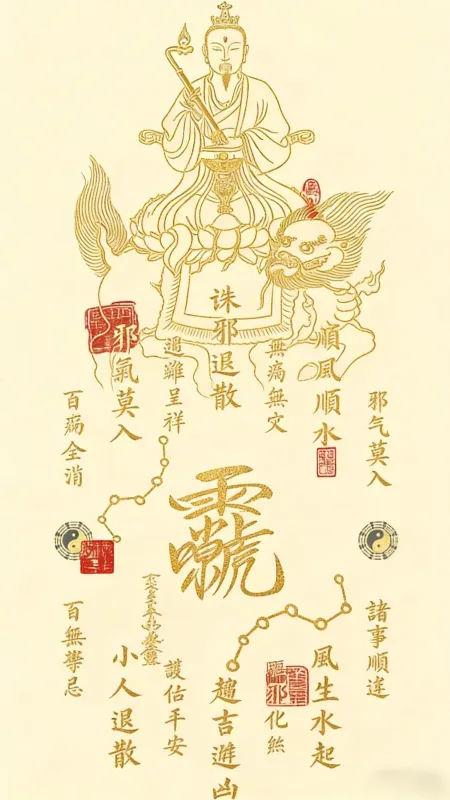 邪气莫入
順風順水
無病無灾
誅邪退散
遇難呈祥
邪氣莫入
百病全消
諸事順遂
風生水起
化煞
趨吉避凶
護佑平安
小人退散
百無禁忌